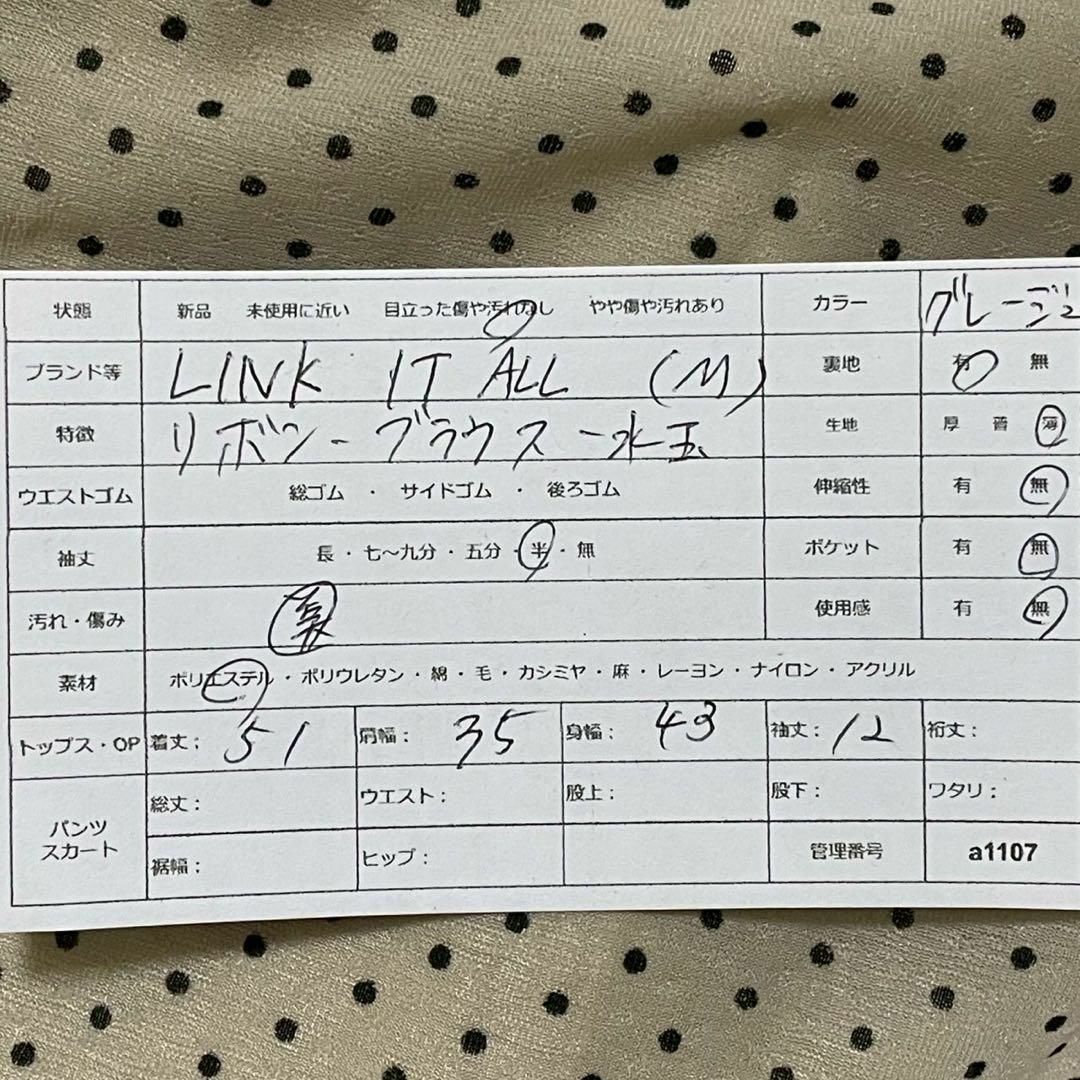 状態 新品 未使用に近い 目立った傷や汚れなし やや傷や汚れあり カラー グレージュ
ブランド等 LINK IT ALL (M) 裏地 有 無
特徴 リボン-ブラウス-水玉 生地 厚 普 薄
ウエストゴム 総ゴム ・ サイドゴム ・ 後ろゴム 伸縮性 有 無
袖丈 長・七〜九分・五分・半・無 ポケット 有 無
汚れ・傷み 使用感 有 無
素材 ポリエステル・ポリウレタン・綿・毛・カシミヤ・麻・レーヨン・ナイロン・アクリル
トップス・OP 着丈; 51 肩幅: 35 身幅: 43 袖丈: 12 裄丈:
パンツ スカート 総丈: ウエスト: 股上: 股下: ワタリ:
裾幅; ヒップ: 管理番号 a1107